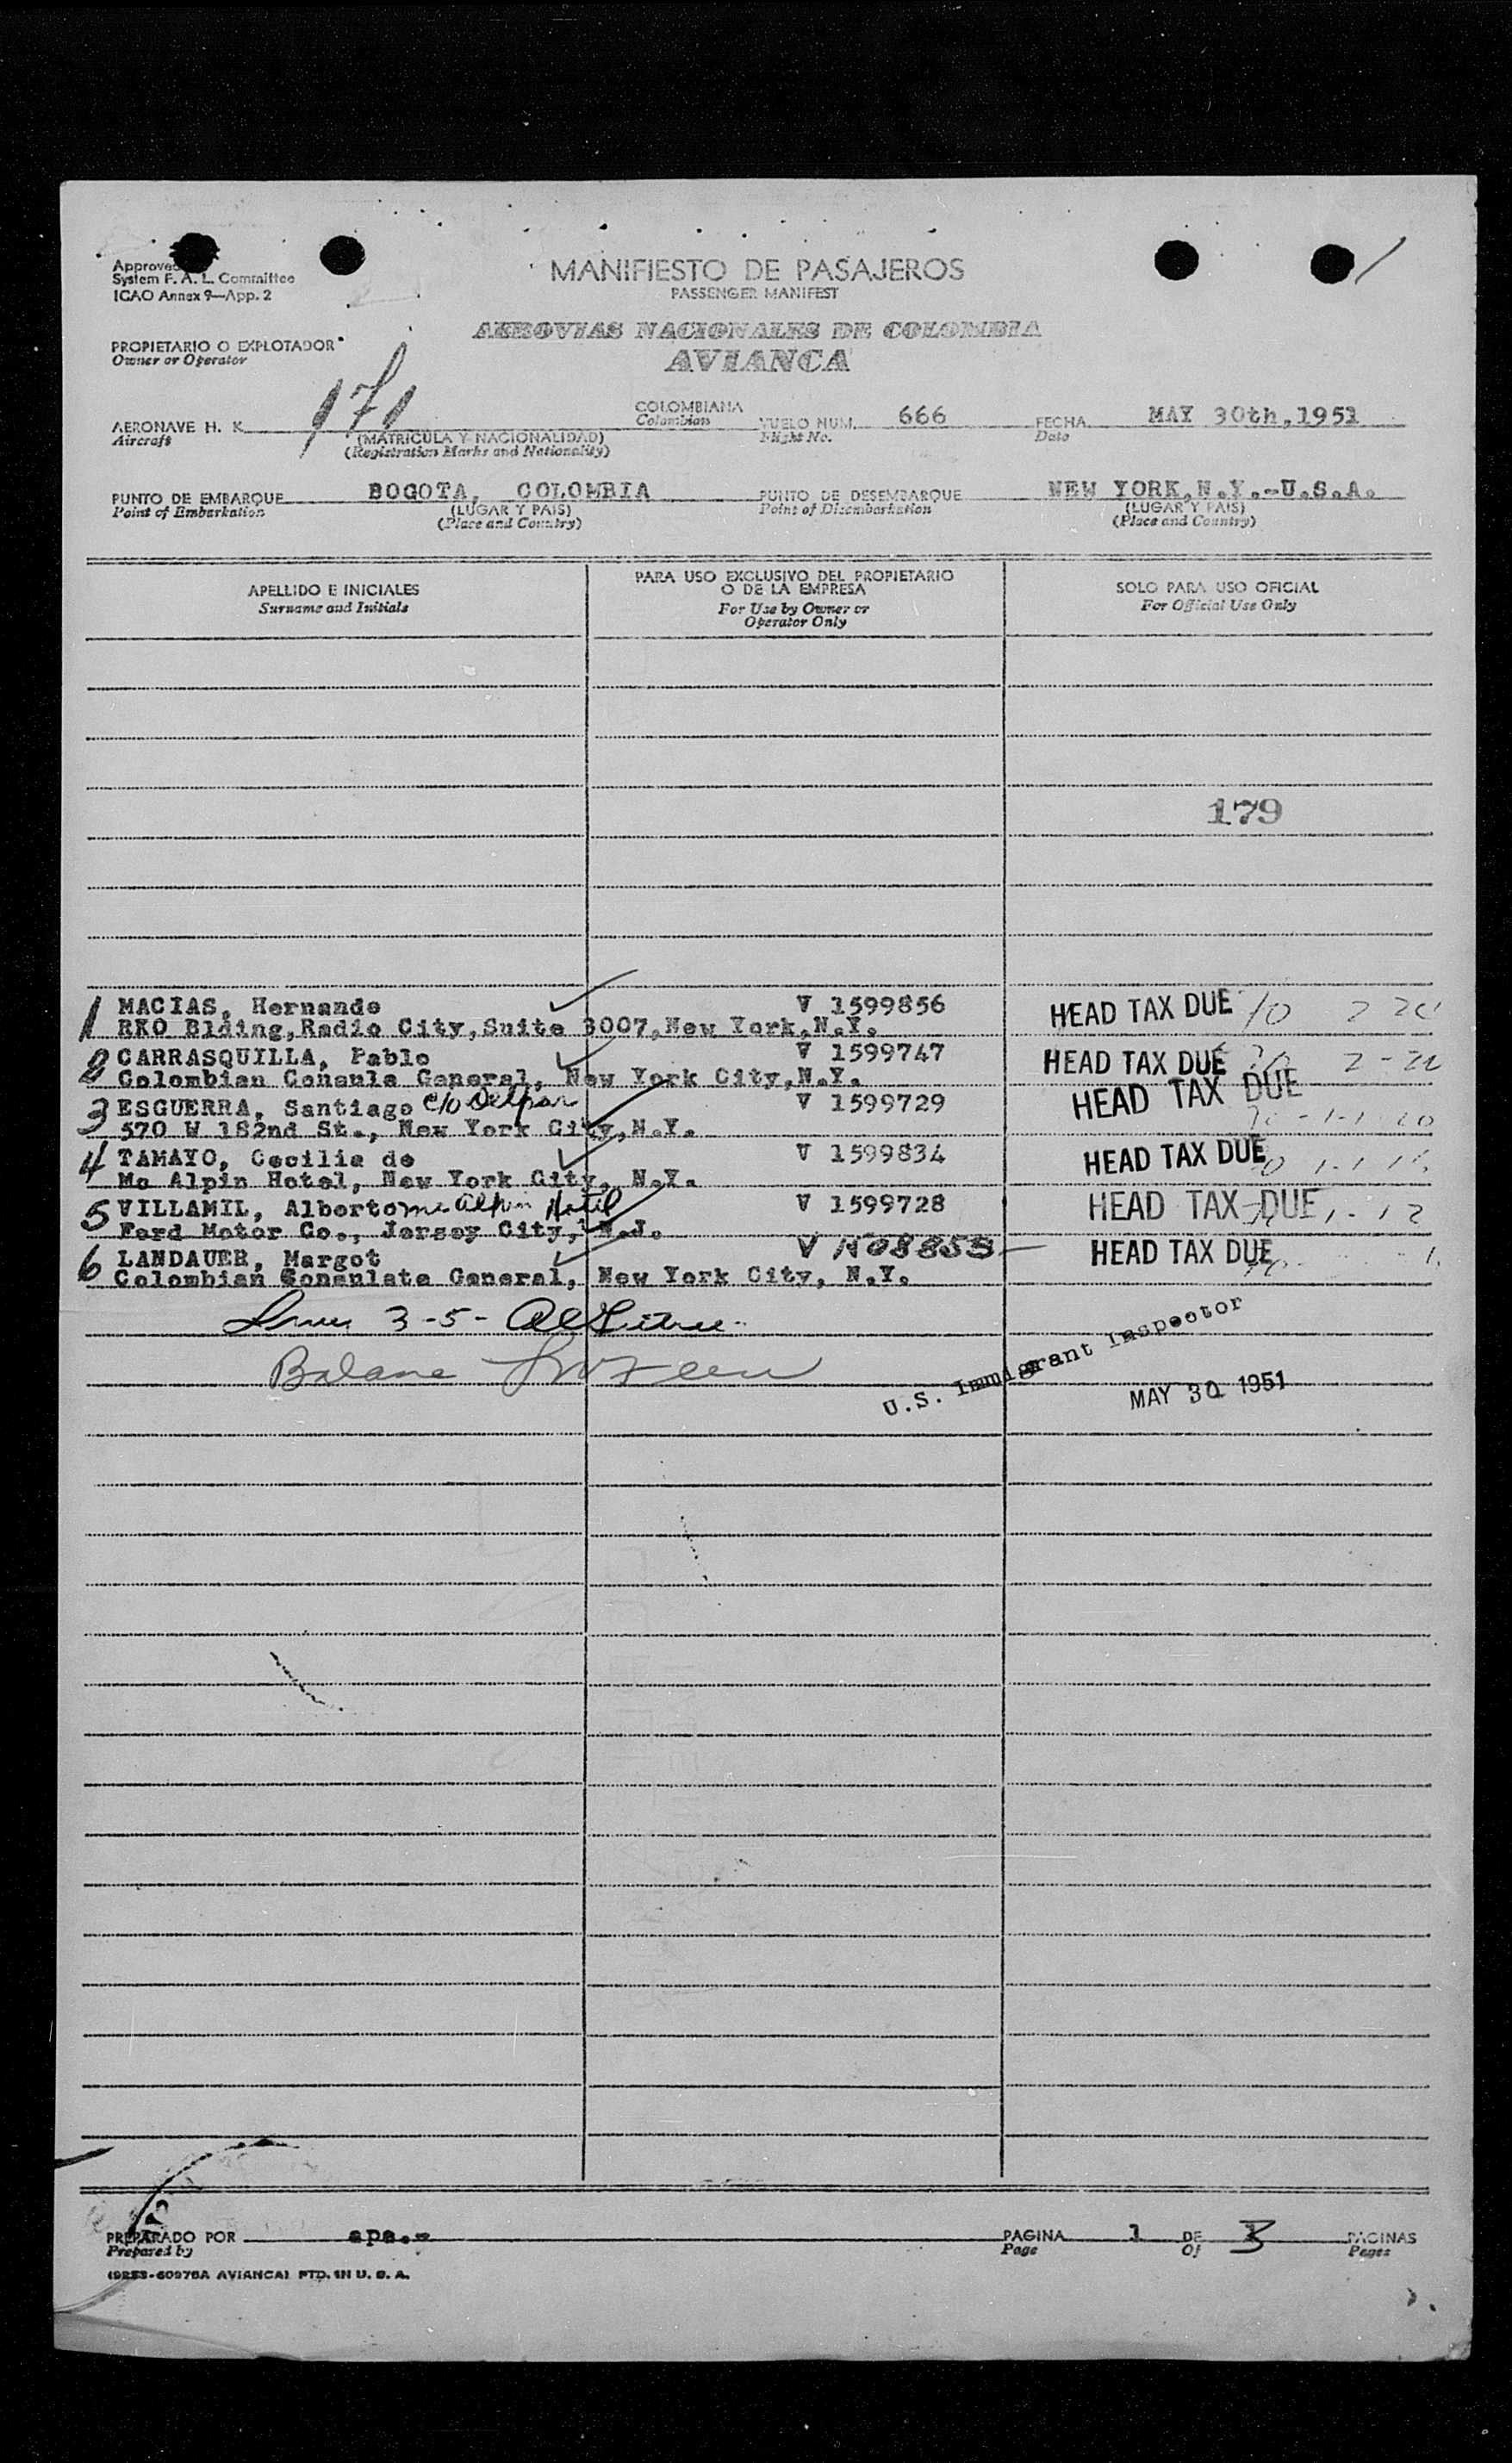 Approved
System F. A. L. Committee
ICAO Annex 9—App. 2
MANIFIESTO DE PASAJEROS
PASSENGER MANIFEST
AEROVIAS NACIONALES DE COLOMBIA
AVIANCA
PROPIETARIO O EXPLOTADOR
Owner or Operator
AERONAVE H. K. 171 COLOMBIANA VUELO NUM. 666 FECHA MAY 30th,1951
Aircraft (MATRICULA Y NACIONALIDAD) Colombian Flight No. Date
(Registration Marks and Nationality)
PUNTO DE EMBARQUE BOGOTA, COLOMBIA PUNTO DE DESEMBARQUE NEW YORK,N.Y.-U.S.A.
Point of Embarkation (LUGAR Y PAIS) Point of Disembarkation (LUGAR Y PAIS)
(Place and Country) (Place and Country)
APELLIDO E INICIALES PARA USO EXCLUSIVO DEL PROPIETARIO O DE LA EMPRESA SOLO PARA USO OFICIAL
Surname and Initials For Use by Owner or Operator Only For Official Use Only
179
1 MACIAS, Hernando V 1599856 HEAD TAX DUE
RKO Blding,Radio City,Suite 3007,New York,N.Y.
2 CARRASQUILLA, Pablo V 1599747 HEAD TAX DUE
Colombian Consula General, New York City,N.Y.
3 ESGUERRA, Santiago c/o V 1599729 HEAD TAX DUE
570 W 182nd St., New York City,N.Y.
4 TAMAYO, Cecilia de V 1599834 HEAD TAX DUE
Mc Alpin Hotel, New York City, N.Y.
5 VILLAMIL, Alberto Mc Alpin Hotel V 1599728 HEAD TAX DUE
Ford Motor Co., Jersey City, N.J.
6 LANDAUER, Margot V HEAD TAX DUE
Colombian Consulate General, New York City, N.Y.
3-5-
U.S. Immigrant Inspector
MAY 30 1951
PREPARADO POR apa.- PAGINA 1 DE 3 PAGINAS
Prepared by Page Of Pages
AVIANCA) PTD. IN U. S. A.